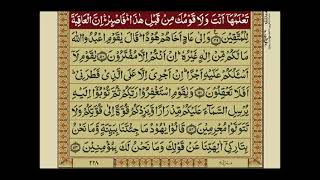 تَعْلَمُهَاۤ اَنْتَ وَلَا قَوْمُكَ مِنْ قَبْلِ هٰذَا ۛؕ فَاصْبِرْ ۛؕ اِنَّ الْعَاقِبَةَ
لِلْمُتَّقِيْنَ ۝۴۹ وَاِلٰى عَادٍ اَخَاهُمْ هُوْدًا ؕ قَالَ يٰقَوْمِ اعْبُدُوا اللّٰهَ
مَا لَكُمْ مِّنْ اِلٰهٍ غَيْرُهٗ ؕ اِنْ اَنْتُمْ اِلَّا مُفْتَرُوْنَ ۝۵۰ يٰقَوْمِ لَاۤ
اَسْـَٔلُكُمْ عَلَيْهِ اَجْرًا ؕ اِنْ اَجْرِيَ اِلَّا عَلَى الَّذِيْ فَطَرَنِيْ ؕ
اَفَلَا تَعْقِلُوْنَ ۝۵۱ وَيٰقَوْمِ اسْتَغْفِرُوْا رَبَّكُمْ ثُمَّ تُوْبُوْۤا اِلَيْهِ
يُرْسِلِ السَّمَآءَ عَلَيْكُمْ مِّدْرَارًا وَّيَزِدْكُمْ قُوَّةً اِلٰى قُوَّتِكُمْ وَلَا
تَتَوَلَّوْا مُجْرِمِيْنَ ۝۵۲ قَالُوْا يٰهُوْدُ مَا جِئْتَنَا بِبَيِّنَةٍ وَّمَا نَحْنُ
بِتَارِكِيْۤ اٰلِهَتِنَا عَنْ قَوْلِكَ وَمَا نَحْنُ لَكَ بِمُؤْمِنِيْنَ ۝۵۳
۲۲۸